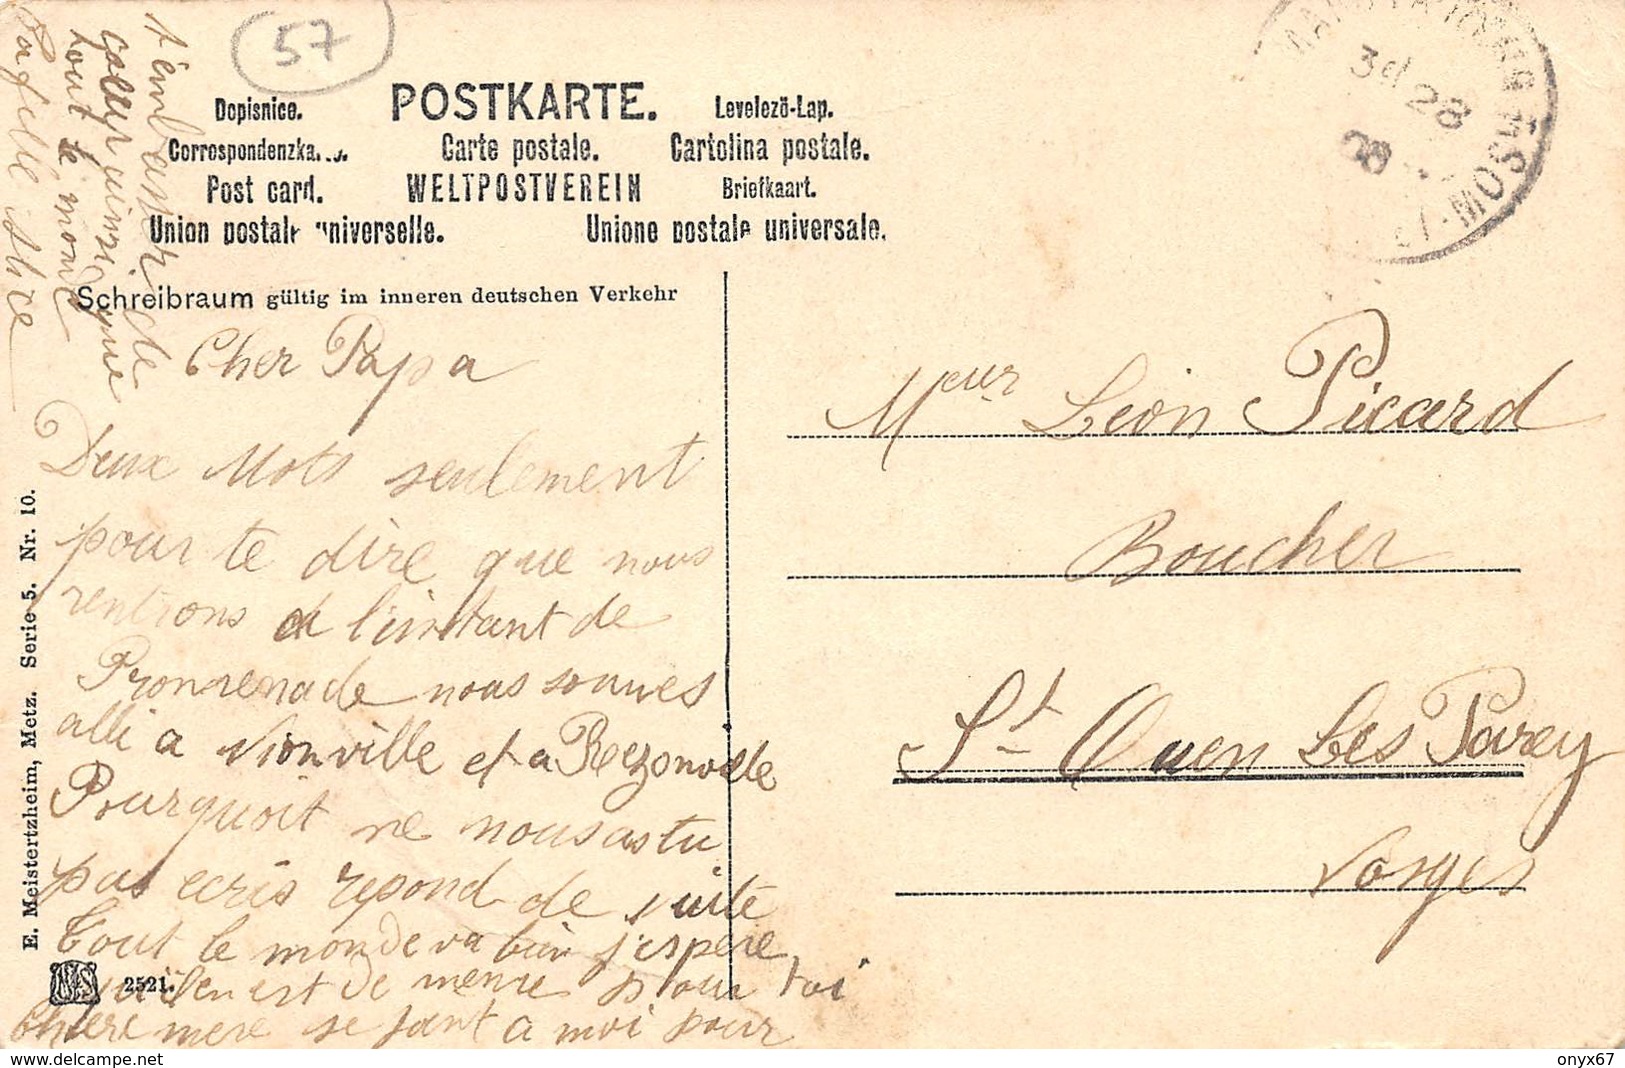 57
POSTKARTE.
Dopisnice.
Levelezö-Lap.
Correspondenzka...
Carte postale.
Cartolina postale.
Post card.
WELTPOSTVEREIN
Briefkaart.
Union postale universelle.
Unione postale universale.
Schreibraum gültig im inneren deutschen Verkehr
Cher Papa
Deux Mots seulement
pour te dire que nous
rentrons a l'instant de
Promenade nous sommes
alli a Vionville et a Rezonville
Pourquoit ne nous as tu
pas ecris repond de suite
Tout le monde va bien j'espere
qu'il en est de meme pour toi
Chere mere se joint a moi pour
t'embrasser de
coeur ainsi que
tout le monde
Ta fille
Meur Léon Picard
Boucher
St Ouen Les Parey
Vosges
3 28
28
MOSEL
E. Meistertzheim, Metz. Serie 5. Nr. 10.
2521.
onyx67